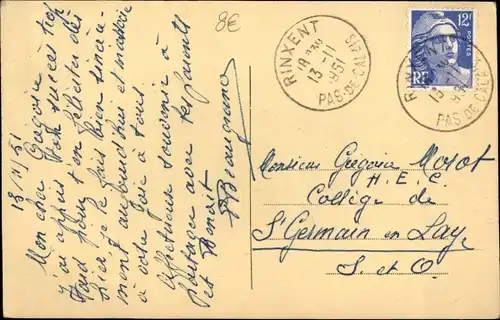 13/11/51
Mon cher Grégoire
J'ai appris ton succès trop
tard pour t'en féliciter dès
hier je le fais bien sincère-
ment aujourd'hui et m'associe
à votre joie à tous.
Affectueux souvenir à
partager avec tes parents
et Benoit
Beaugrand
8€
RINXENT
18H30
13-11
1951
PAS-DE-CALAIS
12F
POSTES
RF
RINXENT
13-11
PAS-DE-CALAIS
Monsieur Grégoire Mozot
H.E.C.
Collège de
St Germain en Laye
S. et O.